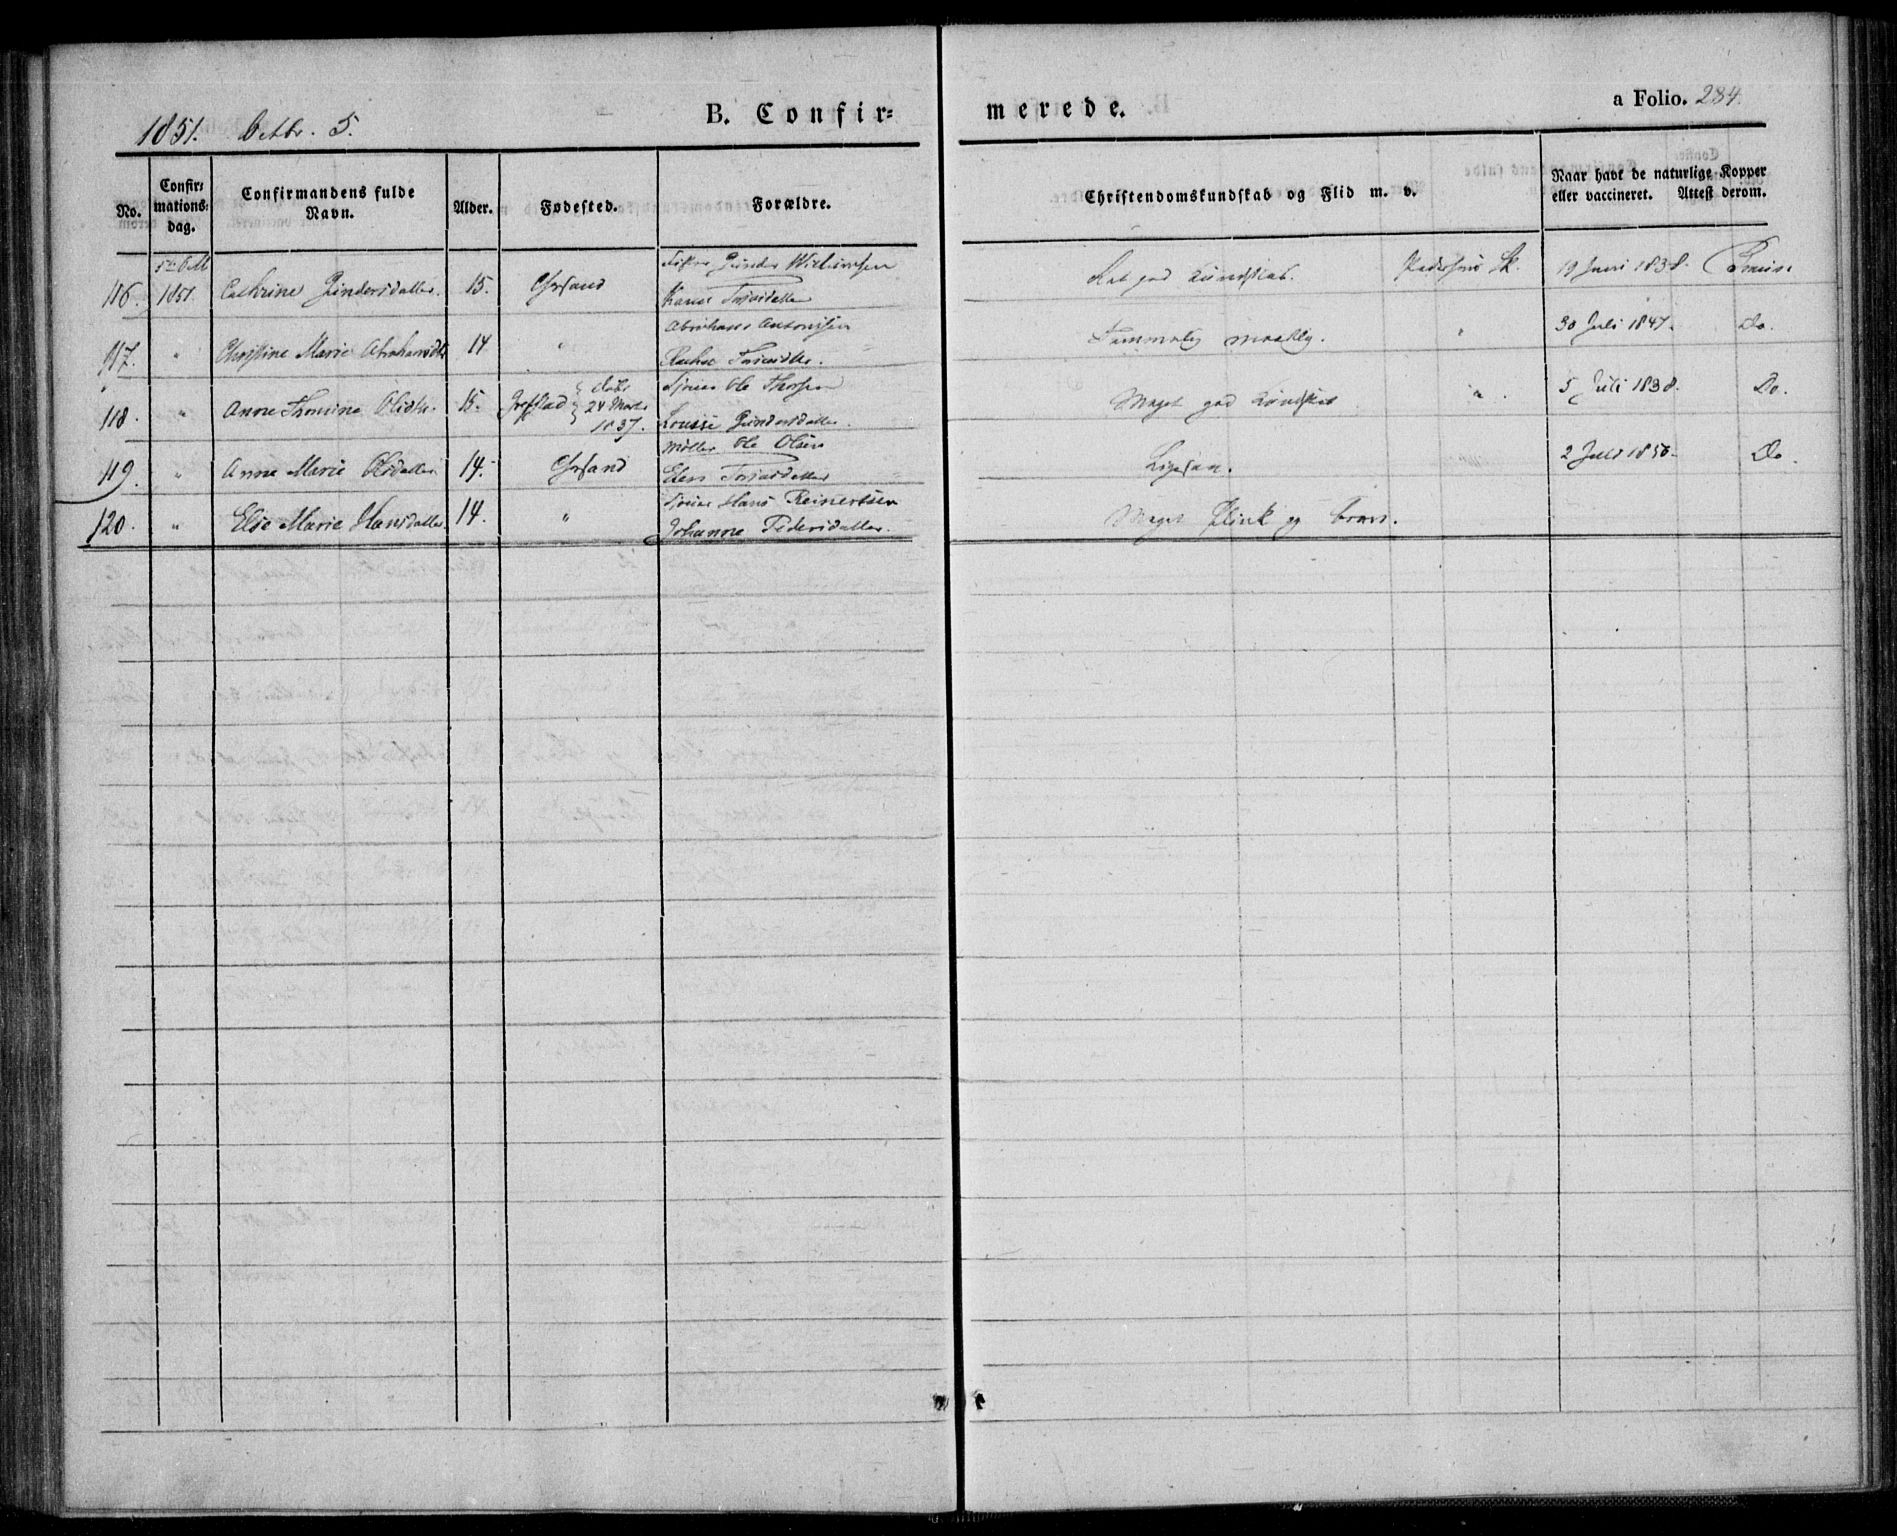 1851. Octbr. 5.
B. Confir=
merede.
a Folio. 284.
No.
Confir=
mations=
dag.
Confirmandens fulde
Navn.
Alder.
Fødested.
Forældre.
Christendomskundskab og Flid m. v.
Naar havt de naturlige Kopper
eller vaccineret. Attest derom.
5te Oct
1851.
116. Cathrine Gundersdatter. 15. Gunder Willumsen
Karen god Kundskab. 19 Juni 1838.
117. " Christine Marie Abrahamsdtr 14 " Abraham Antonisen
Rachel maadelig. " 30 Juli 1847. Do.
118. " Anne Thomine Olsdtr. 15. døbt
24 Marts
1837.
Ole Thorsen
Lovise Gundersdatter.
Meget god Kundskab " 5 Juli 1838. Do.
119. " Anne Marie Olsdatter 14. Møller Ole Olsen
Elen
Ligesaa. 2 Juli Do.
120. " Else Marie Hansdatter 14. " Hans Reinertsen
Johanne Pedersdatter.
Meget flink og brav.